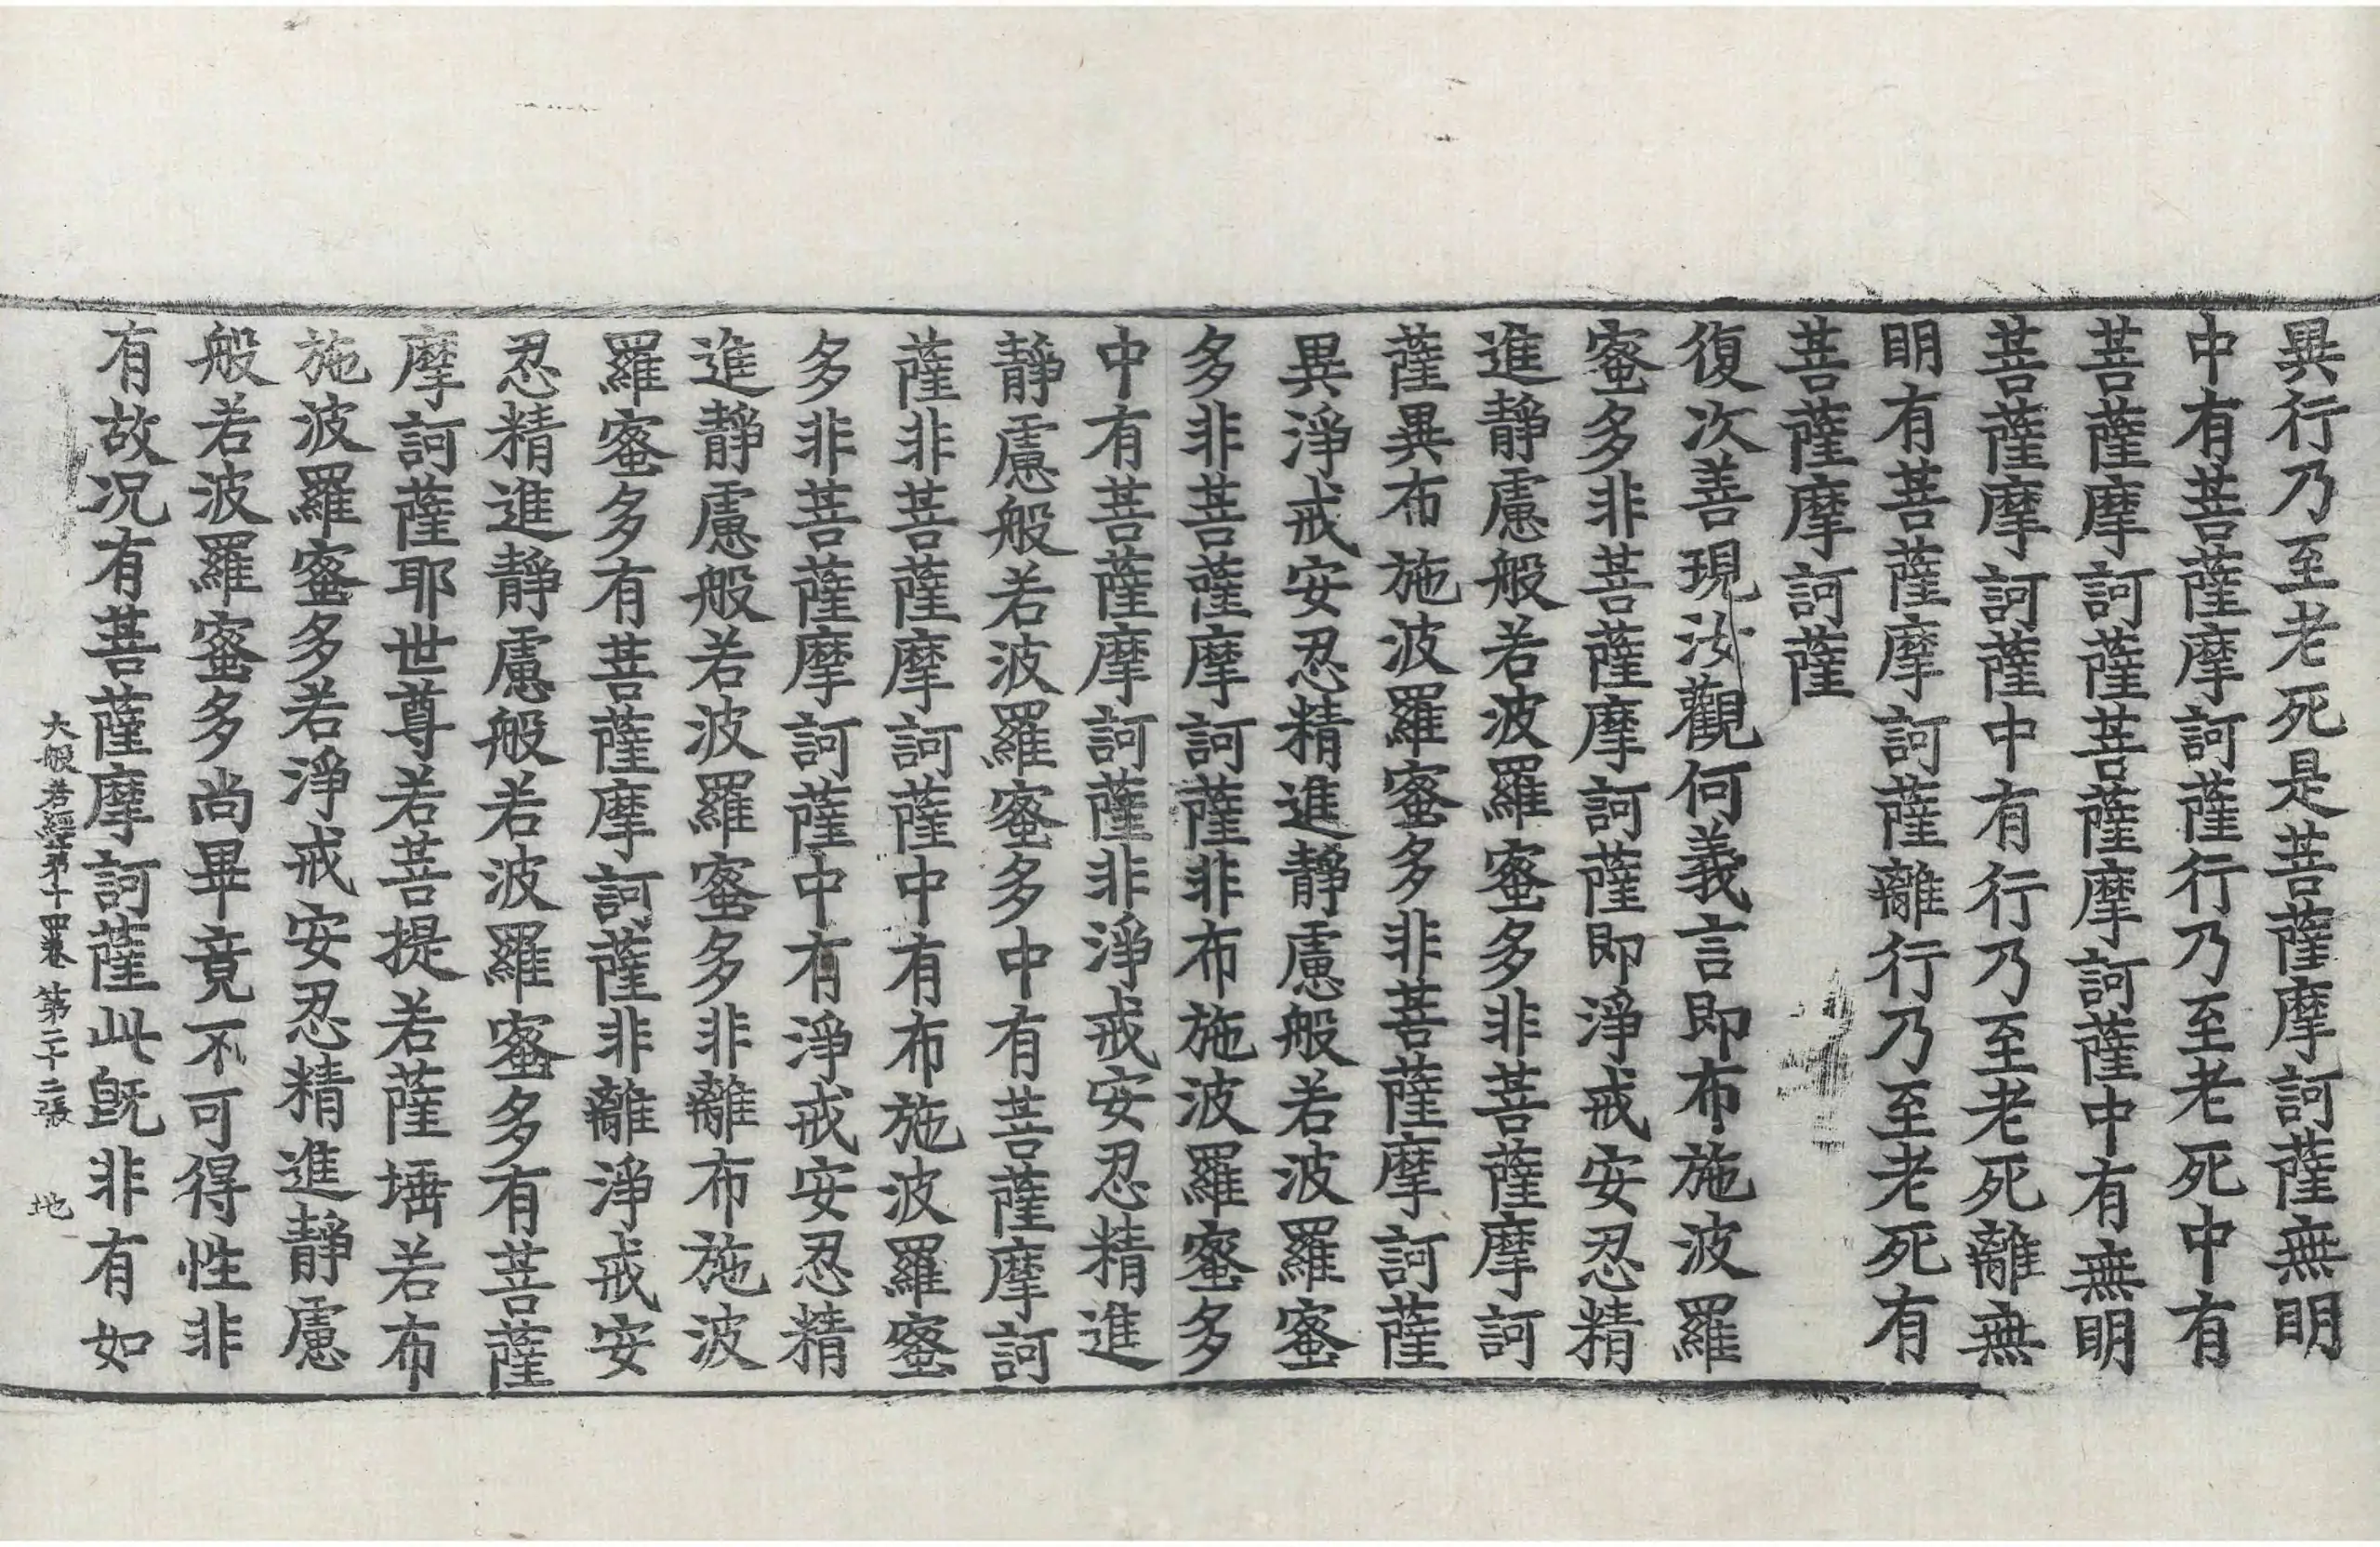 異行乃至老死是菩薩摩訶薩無明
中有菩薩摩訶薩行乃至老死中有
菩薩摩訶薩菩薩摩訶薩中有無明
菩薩摩訶薩中有行乃至老死離無
明有菩薩摩訶薩離行乃至老死有
菩薩摩訶薩
復次善現汝觀何義言即布施波羅
蜜多非菩薩摩訶薩即淨戒安忍精
進靜慮般若波羅蜜多非菩薩摩訶
薩異布施波羅蜜多非菩薩摩訶薩
異淨戒安忍精進靜慮般若波羅蜜
多非菩薩摩訶薩非布施波羅蜜多
中有菩薩摩訶薩非淨戒安忍精進
靜慮般若波羅蜜多中有菩薩摩訶
薩非菩薩摩訶薩中有布施波羅蜜
多非菩薩摩訶薩中有淨戒安忍精
進靜慮般若波羅蜜多非離布施波
羅蜜多有菩薩摩訶薩非離淨戒安
忍精進靜慮般若波羅蜜多有菩薩
摩訶薩耶世尊若菩提若薩埵若布
施波羅蜜多若淨戒安忍精進靜慮
般若波羅蜜多尚畢竟不可得性非
有故況有菩薩摩訶薩此既非有如
大般若經第十四卷 第二十二張 地